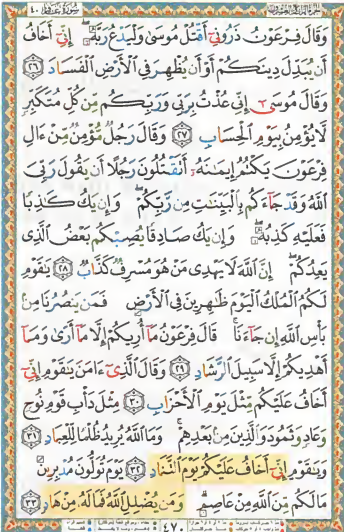 سورة غافر ٤٠
وَقَالَ فِرْعَوْنُ ذَرُونِي أَقْتُلْ مُوسَىٰ وَلْيَدْعُ رَبَّهُ ۖ إِنِّي أَخَافُ
أَن يُبَدِّلَ دِينَكُمْ أَوْ أَن يُظْهِرَ فِي الْأَرْضِ الْفَسَادَ ٢٦
وَقَالَ مُوسَىٰ إِنِّي عُذْتُ بِرَبِّي وَرَبِّكُم مِّن كُلِّ مُتَكَبِّرٍ
لَّا يُؤْمِنُ بِيَوْمِ الْحِسَابِ ٢٧ وَقَالَ رَجُلٌ مُّؤْمِنٌ مِّنْ ءَالِ
فِرْعَوْنَ يَكْتُمُ إِيمَٰنَهُۥٓ أَتَقْتُلُونَ رَجُلًا أَن يَقُولَ رَبِّيَ
اللَّهُ وَقَدْ جَآءَكُم بِالْبَيِّنَٰتِ مِن رَّبِّكُمْ ۖ وَإِن يَكُ كَٰذِبًا
فَعَلَيْهِ كَذِبُهُۥ ۖ وَإِن يَكُ صَادِقًا يُصِبْكُم بَعْضُ الَّذِي
يَعِدُكُمْ ۖ إِنَّ اللَّهَ لَا يَهْدِي مَنْ هُوَ مُسْرِفٌ كَذَّابٌ ٢٨ يَٰقَوْمِ
لَكُمُ الْمُلْكُ الْيَوْمَ ظَٰهِرِينَ فِي الْأَرْضِ فَمَن يَنصُرُنَا مِنۢ
بَأْسِ اللَّهِ إِن جَآءَنَا ۚ قَالَ فِرْعَوْنُ مَآ أُرِيكُمْ إِلَّا مَآ أَرَىٰ وَمَآ
أَهْدِيكُمْ إِلَّا سَبِيلَ الرَّشَادِ ٢٩ وَقَالَ الَّذِيٓ ءَامَنَ يَٰقَوْمِ إِنِّيٓ
أَخَافُ عَلَيْكُم مِّثْلَ يَوْمِ الْأَحْزَابِ ٣٠ مِثْلَ دَأْبِ قَوْمِ نُوحٍ
وَعَادٍ وَثَمُودَ وَالَّذِينَ مِنۢ بَعْدِهِمْ ۚ وَمَا اللَّهُ يُرِيدُ ظُلْمًا لِّلْعِبَادِ ٣١
وَيَٰقَوْمِ إِنِّيٓ أَخَافُ عَلَيْكُمْ يَوْمَ التَّنَادِ ٣٢ يَوْمَ تُوَلُّونَ مُدْبِرِينَ
مَا لَكُم مِّنَ اللَّهِ مِنْ عَاصِمٍ ۗ وَمَن يُضْلِلِ اللَّهُ فَمَا لَهُۥ مِنْ هَادٍ ٣٣
٤٧٠